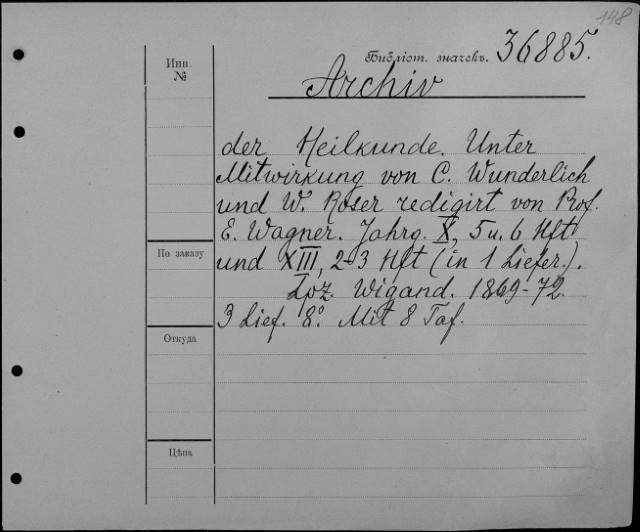 148
Библіот. значекъ. 36885.
Archiv
Инв.
№
der Heilkunde. Unter
Mitwirkung von C. Wunderlich
und W. Roser redigirt von Prof.
E. Wagner. Jahrg. X, 5 u. 6 Hft
und XIII, 2-3 Hft (in 1 Liefer.).
Lpz. Wigand. 1869-72.
3 Lief. 8°. Mit 8 Taf.
По заказу
Откуда
Цѣна